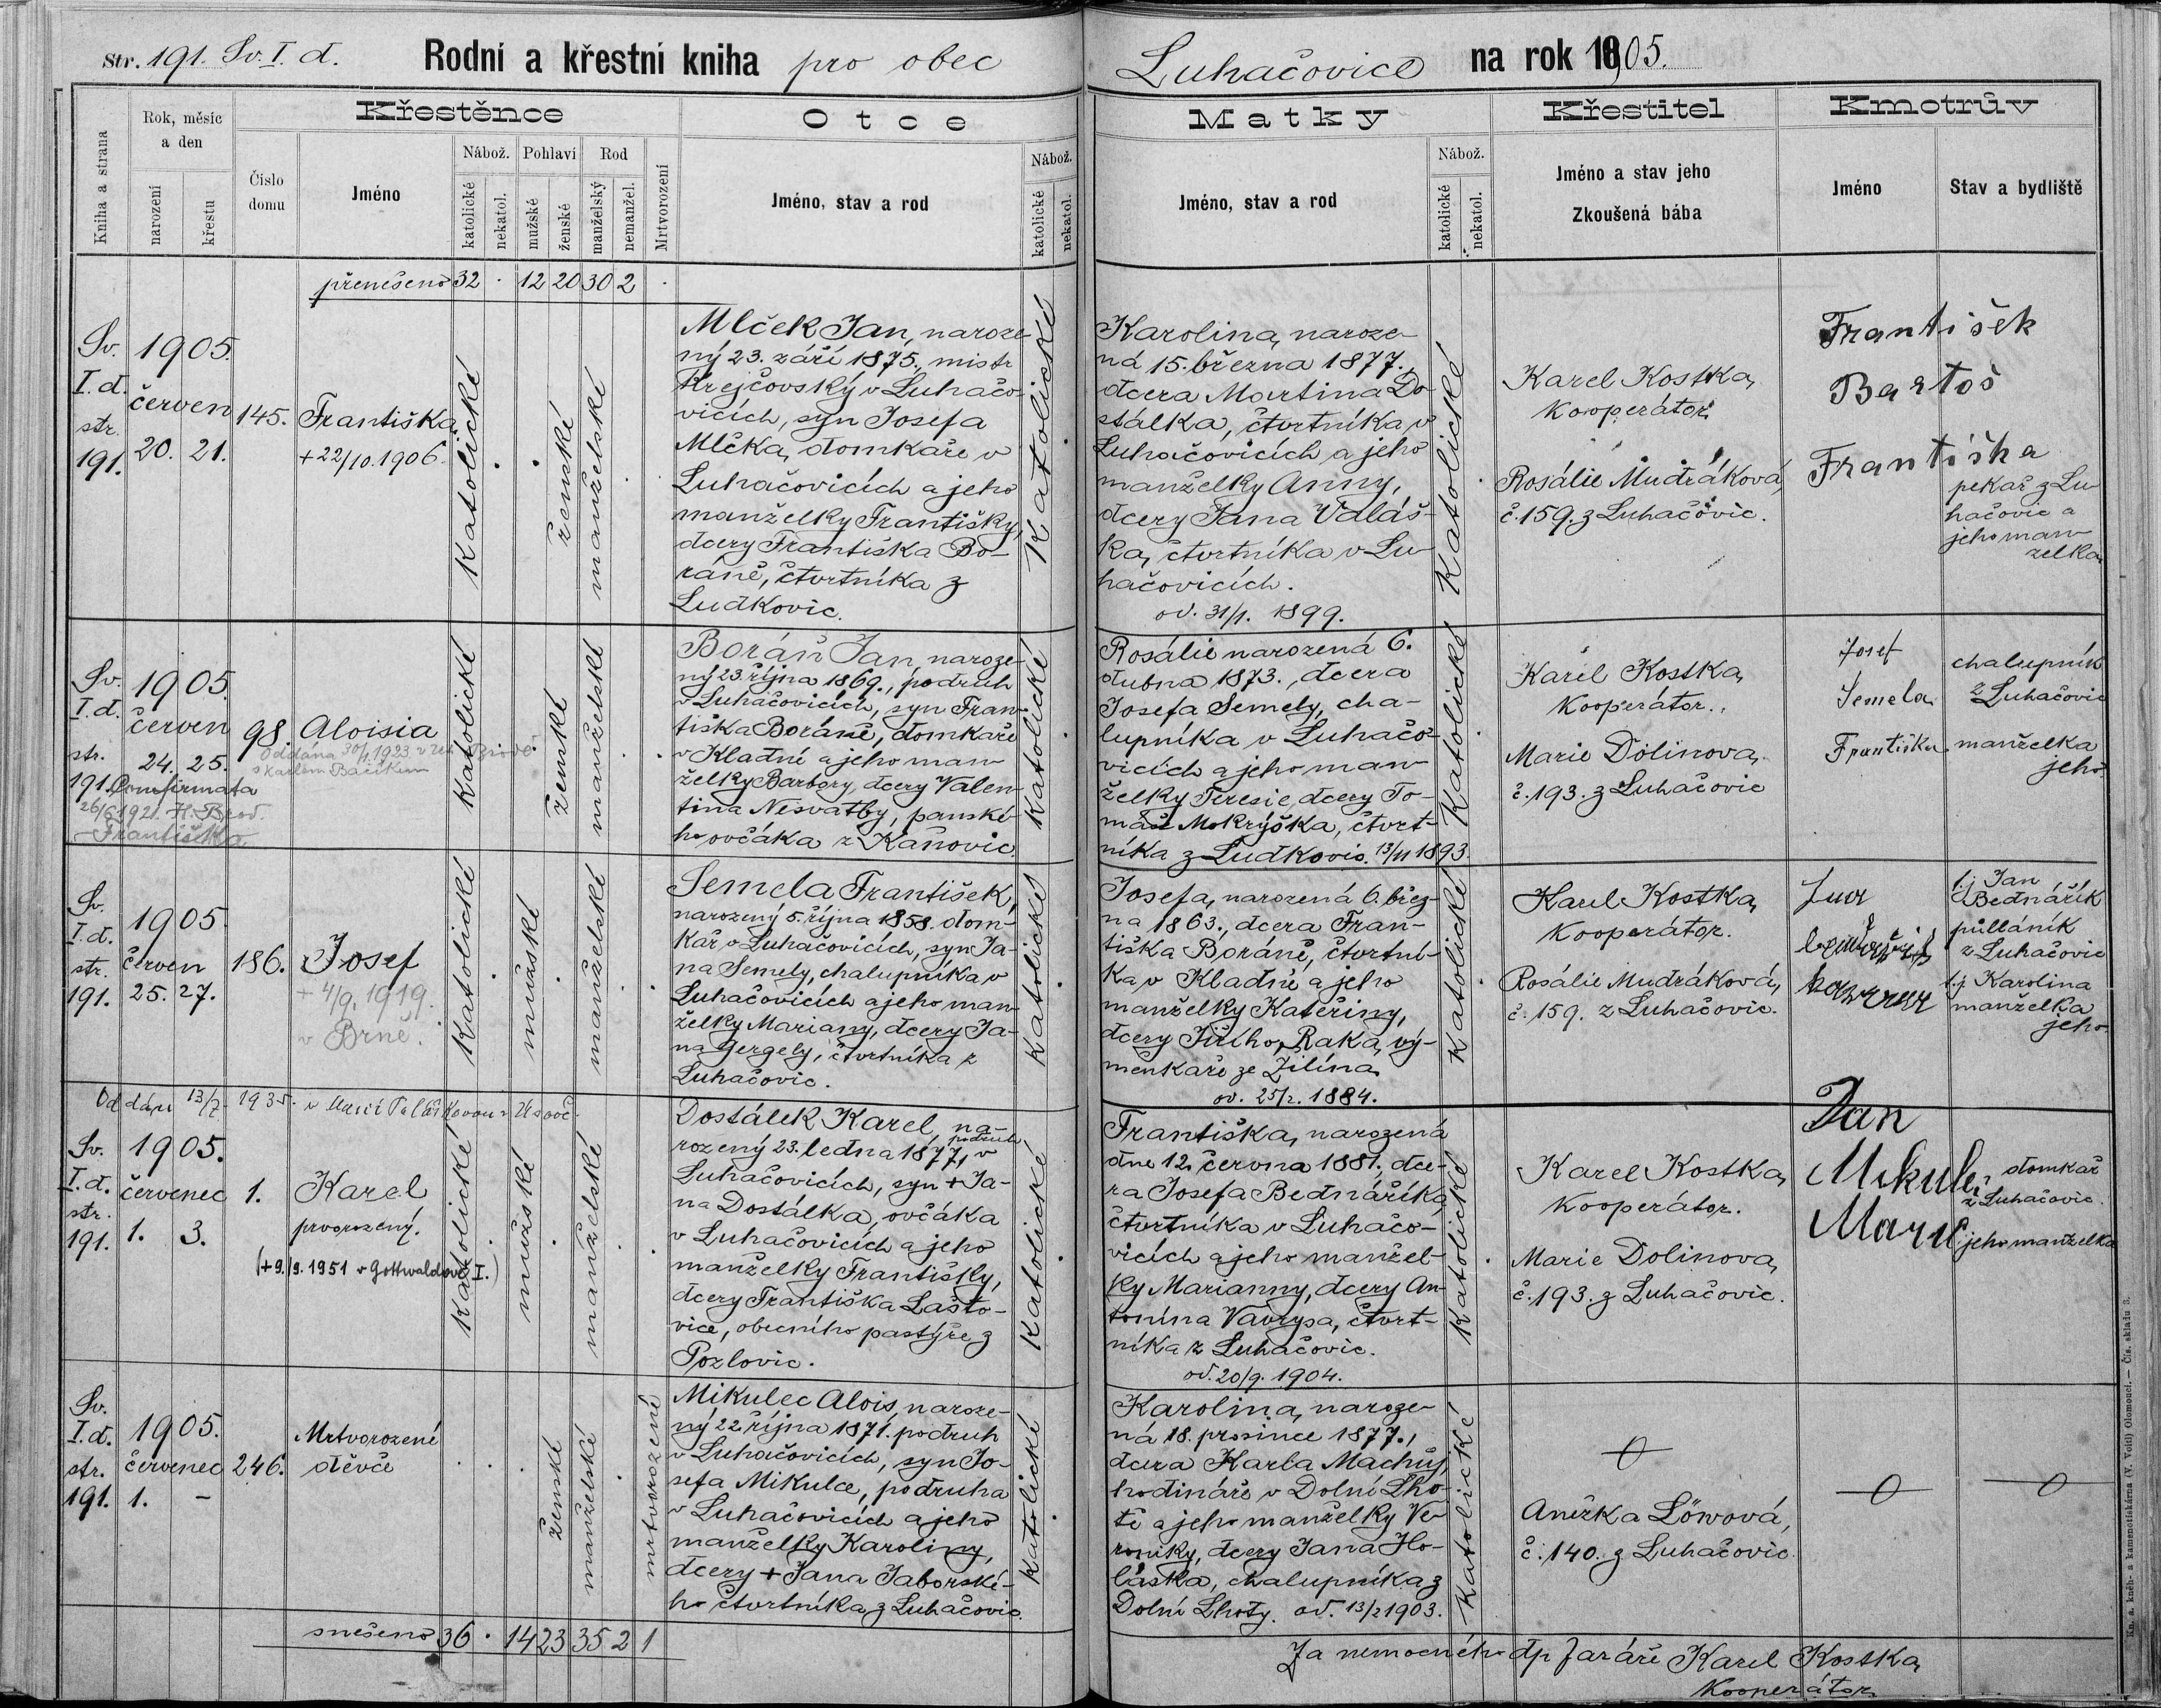 Str. 191. Sv. I. d. Rodní a křestní kniha pro obec Luhačovice na rok 1905.
Kniha a strana
Rok, měsíc
a den
narození
křestu
Číslo
domu
Křestěnce
Jméno
Nábož.
katolické
nekatol.
Pohlaví
mužské
ženské
Rod
manželský
nemanžel.
Mrtvorození
Otce
Jméno, stav a rod
Nábož.
katolické
nekatol.
Matky
Jméno, stav a rod
Nábož.
katolické
nekatol.
Křestitel
Jméno a stav jeho
Zkoušená bába
Kmotrův
Jméno
Stav a bydliště
přenešeno 32 . 12 20 30 2 .
Sv.
I. d.
str.
191.
1905.
červen
20. 21.
145.
Františka
+ 22/10. 1906.
Katolické
ženské
manželské
Mlček Jan, naroze-
ný 23. září 1875., mistr
Krejčovský v Luhačo-
vicích, syn Josefa
Mlčka, domkaře v
Luhačovicích a jeho
manželky Františky,
dcery Františka Bo-
ráně, čtvrtníka z
Ludkovic.
Katolické
Karolina, naroze-
ná 15. března 1877.,
dcera Martina Do-
stálka, čtvrtníka v
Luhačovicích a jeho
manželky Anny,
dcery Jana Valáš-
ka, čtvrtníka v Lu-
hačovicích.
od. 31/1. 1899.
Katolické
Karel Kostka,
Kooperátor.
Rosálie Mudráková,
č. 159. z Luhačovic.
František
Bartoš
Františka
pekař z Lu-
hačovic a
jeho man-
želka
Sv.
I. d.
str.
191.
1905.
červen
24. 25.
98.
Aloisia
Oddána 30/1. 1923. v
s Karlem
Confirmata
26/6 1921. H. Brod.
Františka
Katolické
ženské
manželské
Boráň Jan, naroze-
ný 23. října 1869., podruh
v Luhačovicích, syn Fran-
tiška Boráně, domkaře
v Kladné a jeho man-
želky Barbory, dcery Valen-
tina Nesvatby, panské-
ho ovčáka z Kaňovic.
Katolické
Rosálie narozená 6.
dubna 1873., dcera
Josefa Semely, cha-
lupníka v Luhačo-
vicích a jeho man-
želky Teresie, dcery To-
máše Mokrýška, čtvrt-
níka z Ludkovic. 13/11 1893.
Katolické
Karel Kostka,
Kooperátor.
Marie Dolinova,
č. 193. z Luhačovic
Josef
Semela
Františka
chalupník
z Luhačovic
manželka
jeho
Sv.
I. d.
str.
191.
1905.
červen
25. 27.
186.
Josef
+ 4/9. 1919.
v Brně.
Katolické
mužské
manželské
Semela František,
narozený 5. října 1858. dom-
kář v Luhačovicích, syn Ja-
na Semely, chalupníka v
Luhačovicích a jeho man-
želky Mariany, dcery Ja-
na Gergely, čtvrtníka z
Luhačovic.
Katolické
Josefa, narozená 6. břez-
na 1863., dcera Fran-
tiška Boráně, čtvrtní-
ka v Kladné a jeho
manželky Kateřiny,
dcery Jiřího Raka, vý-
menkáře ze Žilína
od. 25/2. 1884.
Katolické
Karel Kostka,
Kooperátor.
Rosálie Mudráková,
č. 159. z Luhačovic.
t. j. Jan
Bednářík
půlláník
z Luhačovic
t. j. Karolina
manželka
jeho
Oddán 13/7. 1935. s Marií
Sv.
I. d.
str.
191.
1905.
červenec
1. 3.
1.
Karel
prvorozený.
(+ 9./9. 1951 v Gottwaldově I.)
Katolické
mužské
manželské
Dostálek Karel, na-
rozený 23. ledna 1877, podruh v
Luhačovicích, syn + Ja-
na Dostálka, ovčáka
v Luhačovicích a jeho
manželky Františky,
dcery Františka Lašto-
vice, obecního pastýře z
Pozlovic.
Katolické
Františka, narozená
dne 12. června 1881., dce-
ra Josefa Bednáříka,
čtvrtníka v Luhačo-
vicích a jeho manžel-
ky Marianny, dcery An-
tonína Vavrysa, čtvrt-
níka z Luhačovic.
od. 20/9. 1904.
Katolické
Karel Kostka,
Kooperátor.
Marie Dolinova,
č. 193. z Luhačovic.
Jan
Mikulec
Marie
domkař
z Luhačovic.
jeho manželka
Sv.
I. d.
str.
191.
1905.
červenec
1. -
246.
Mrtvorozené
děvče
ženské
manželské
mrtvorozené
Mikulec Alois, naroze-
ný 22. října 1871. podruh
v Luhačovicích, syn Jo-
sefa Mikulce, podruha
v Luhačovicích a jeho
manželky Karoliny,
dcery + Jana Jaborské-
ho čtvrtníka z Luhačovic.
Katolické
Karolina, naroze-
ná 18. prosince 1877.,
dcera Karla Machů,
hodináře v Dolní Lho-
tě a jeho manželky Ve-
roniky, dcery Jana Ho-
láska, chalupníka z
Dolní Lhoty. od. 13/2 1903.
Katolické
Anežka Löwová,
č. 140. z Luhačovic.
snešeno 36 . 14 23 35 2 1
Za nemocného dp. faráře Karel Kostka,
Kooperátor
Kn. a. kněh- a kamenotiskárna (V. Voitl) Olomouci. — Čís. skladu 3.